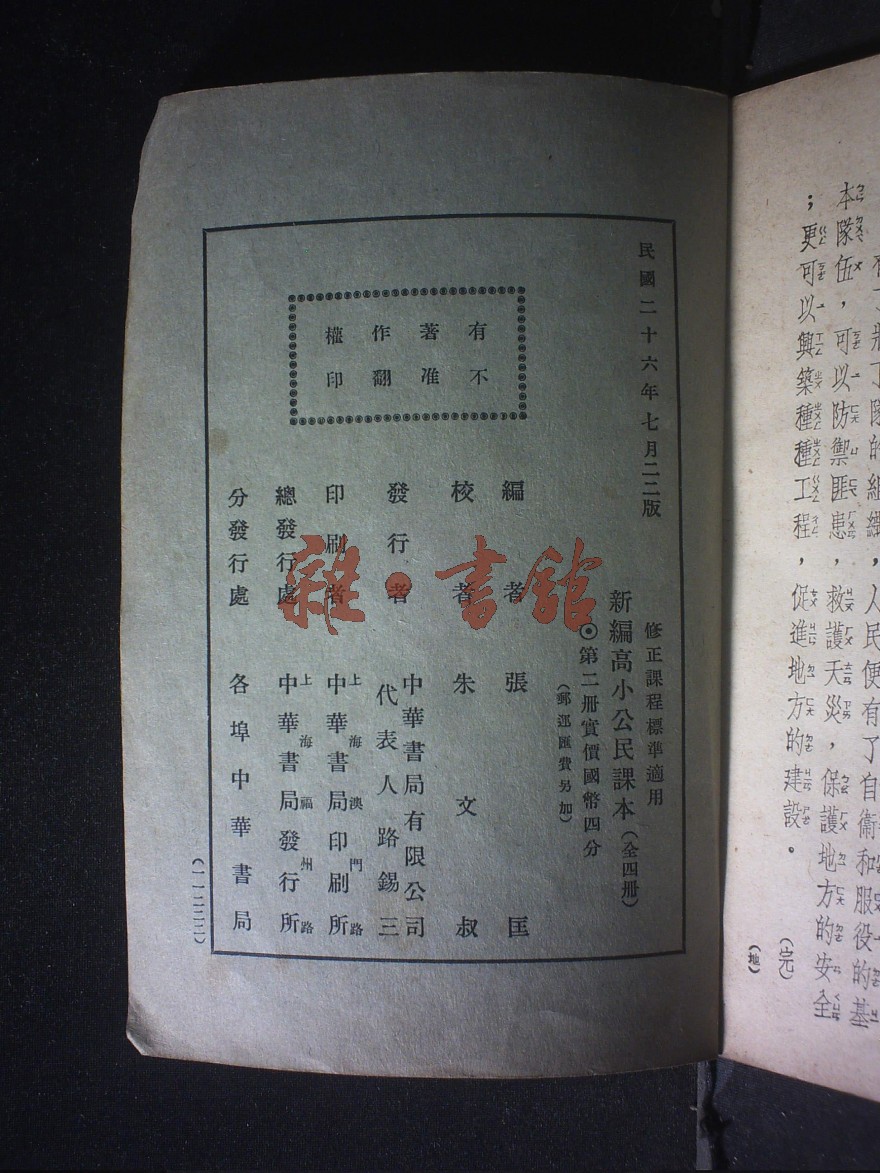 有了壯丁隊的組織，人民便有了自衞和服役的基
本隊伍，可以防禦匪患，救護天災，保護地方的安全
；更可以興築種種工程，促進地方的建設。
（完）
（地）
民國二十六年七月二二版
修正課程標準適用
新編高小公民課本（全四册）
◉第二册實價國幣四分
（郵運匯費另加）
有著作權
不准翻印
編者 張匡
校者 朱文叔
發行者 中華書局有限公司
代表人路錫三
印刷者 上海澳門路
中華書局印刷所
總發行處 上海福州路
中華書局發行所
分發行處 各埠中華書局
（一一二二二）
雜·書館